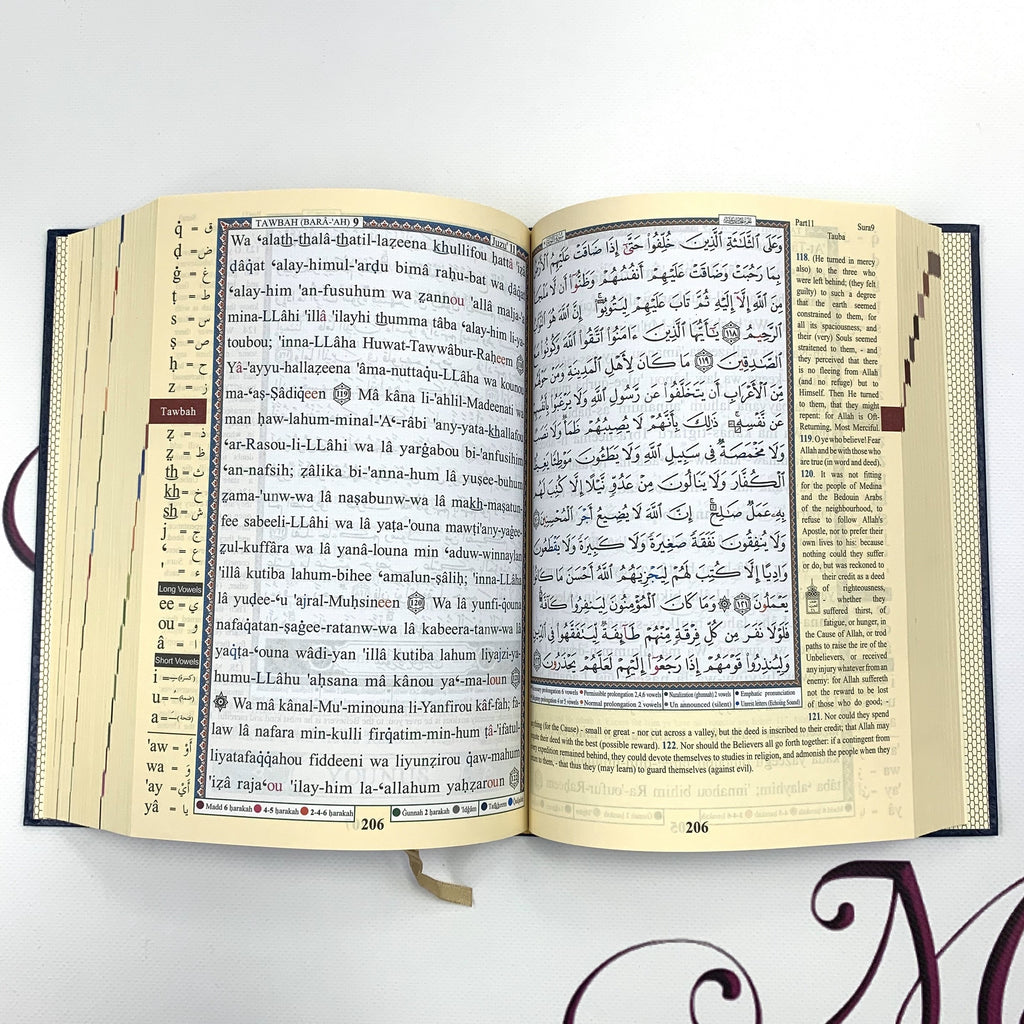 TAWBAH (BARÂ-'AH) 9
Juzu' 11
Wa ʻalath-thalâ-thatil-lazeena khullifou ḥattâ
ḍâqat ʻalay-himul-'arḍu bimâ raḥu-bat wa ḍâqat
ʻalay-him 'an-fusuhum wa ẓannou 'allâ malja-'a
mina-LLâhi 'illâ 'ilayhi thumma tâba ʻalay-him li-ya-
toubou; 'inna-LLâha Huwat-Tawwâbur-Raḥeem
Yâ-'ayyu-hallazeena 'âma-nuttaqu-LLâha wa kounou
ma-ʻaṣ-Ṣâdiqeen 119 Mâ kâna li-'ahlil-Madeenati wa
man ḥaw-lahum-minal-'Aʻ-râbi 'any-yata-khallafou
ʻar-Rasou-li-LLâhi wa lâ yarġabou bi-'anfusihim
ʻan-nafsih; ẓâlika bi-'anna-hum lâ yuṣee-buhum
ẓama-'unw-wa lâ naṣabunw-wa lâ makh-maṣatun-
fee sabeeli-LLâhi wa lâ yaṭa-'ouna mawṭi'any-yaġee-
ẓul-kuffâra wa lâ yanâ-louna min ʻaduw-winnaylan
'illâ kutiba lahum-bihee ʻamalun-ṣâliḥ; 'inna-LLâha
lâ yuḍee-ʻu 'ajral-Muḥsineen 120 Wa lâ yunfi-qouna
nafaqatan-ṣaġee-ratanw-wa lâ kabeera-tanw-wa lâ
yaqṭa-ʻouna wâdi-yan 'illâ kutiba lahum liyajzi-ya-
humu-LLâhu 'aḥsana mâ kânou yaʻ-ma-loun
Wa mâ kânal-Mu'-minouna li-Yanfirou kâf-fah; fa-
law lâ nafara min-kulli firqatim-min-hum ṭâ-'ifatul-
liyatafaqqahou fiddeeni wa liyunẓirou qaw-mahum
'iẓâ rajaʻou 'ilay-him la-ʻallahum yaḥẓaroun
Madd 6 ḥarakah 4-5 ḥarakah 2-4-6 ḥarakah Gunnah 2 ḥarakah 'Idġâm Tafkheem
206
q̇ = ق
ḍ = ض
ġ = غ
ṭ = ط
ṣ = ص
ḥ = ح
z = ز
Tawbah
ẓ = ظ
th = ث
kh = خ
sh = ش
j = ج
ʻ = ع
' = ء
Long Vowels
ee = ي
ou = و
â = ا
Short Vowels
i =
u =
a =
'aw = أَوْ
wa = و
'ay = أَيْ
yâ = يا
وَعَلَى ٱلثَّلَٰثَةِ ٱلَّذِينَ خُلِّفُوا۟ حَتَّىٰٓ إِذَا ضَاقَتْ عَلَيْهِمُ ٱلْأَرْضُ
بِمَا رَحُبَتْ وَضَاقَتْ عَلَيْهِمْ أَنفُسُهُمْ وَظَنُّوٓا۟ أَن لَّا مَلْجَأَ
مِنَ ٱللَّهِ إِلَّآ إِلَيْهِ ثُمَّ تَابَ عَلَيْهِمْ لِيَتُوبُوٓا۟ إِنَّ ٱللَّهَ هُوَ ٱلتَّوَّابُ
ٱلرَّحِيمُ ١١٨ يَٰٓأَيُّهَا ٱلَّذِينَ ءَامَنُوا۟ ٱتَّقُوا۟ ٱللَّهَ وَكُونُوا۟ مَعَ
ٱلصَّٰدِقِينَ ١١٩ مَا كَانَ لِأَهْلِ ٱلْمَدِينَةِ وَمَنْ حَوْلَهُم
مِّنَ ٱلْأَعْرَابِ أَن يَتَخَلَّفُوا۟ عَن رَّسُولِ ٱللَّهِ وَلَا يَرْغَبُوا۟ بِأَنفُسِهِمْ
عَن نَّفْسِهِۦ ذَٰلِكَ بِأَنَّهُمْ لَا يُصِيبُهُمْ ظَمَأٌ وَلَا نَصَبٌ
وَلَا مَخْمَصَةٌ فِى سَبِيلِ ٱللَّهِ وَلَا يَطَـُٔونَ مَوْطِئًا يَغِيظُ
ٱلْكُفَّارَ وَلَا يَنَالُونَ مِنْ عَدُوٍّ نَّيْلًا إِلَّا كُتِبَ لَهُم
بِهِۦ عَمَلٌ صَٰلِحٌ إِنَّ ٱللَّهَ لَا يُضِيعُ أَجْرَ ٱلْمُحْسِنِينَ
وَلَا يُنفِقُونَ نَفَقَةً صَغِيرَةً وَلَا كَبِيرَةً وَلَا يَقْطَعُونَ
وَادِيًا إِلَّا كُتِبَ لَهُمْ لِيَجْزِيَهُمُ ٱللَّهُ أَحْسَنَ مَا كَانُوا۟
يَعْمَلُونَ ١٢١ وَمَا كَانَ ٱلْمُؤْمِنُونَ لِيَنفِرُوا۟ كَآفَّةً
فَلَوْلَا نَفَرَ مِن كُلِّ فِرْقَةٍ مِّنْهُمْ طَآئِفَةٌ لِّيَتَفَقَّهُوا۟ فِى ٱلدِّينِ
وَلِيُنذِرُوا۟ قَوْمَهُمْ إِذَا رَجَعُوٓا۟ إِلَيْهِمْ لَعَلَّهُمْ يَحْذَرُونَ
prolongation 6 vowels Permissible prolongation 2,4,6 vowels Nazalization (ghunnah) 2 vowels Emphatic pronunciation
prolongation 4 or 5 vowels Normal prolongation 2 vowels Un announced (silent) Unrest letters (Echoing Sound)
Part11 Sura9
Tauba
118. (He turned in mercy
also) to the three who
were left behind; (they felt
guilty) to such a degree
that the earth seemed
constrained to them, for
all its spaciousness, and
their (very) Souls seemed
straitened to them, - and
they perceived that there
is no fleeing from Allah
(and no refuge) but to
Himself. Then He turned
to them, that they might
repent: for Allah is Oft-
Returning, Most Merciful.
119. O ye who believe! Fear
Allah and be with those who
are true (in word and deed).
120. It was not fitting
for the people of Medina
and the Bedouin Arabs
of the neighbourhood, to
refuse to follow Allah's
Apostle, nor to prefer their
own lives to his: because
nothing could they suffer
or do, but was reckoned to
their credit as a deed
of righteousness,
- whether they
suffered thirst, of
fatigue, or hunger, in
the Cause of Allah, or trod
paths to raise the ire of the
Unbelievers, or received
any injury whatever from an
enemy: for Allah suffereth
not the reward to be lost
of those who do good; -
121. Nor could they spend
anything (for the Cause) - small or great - nor cut across a valley, but the deed is inscribed to their credit; that Allah may
requite their deed with the best (possible reward). 122. Nor should the Believers all go forth together: if a contingent from
every expedition remained behind, they could devote themselves to studies in religion, and admonish the people when they
return to them, - that thus they (may learn) to guard themselves (against evil).
206